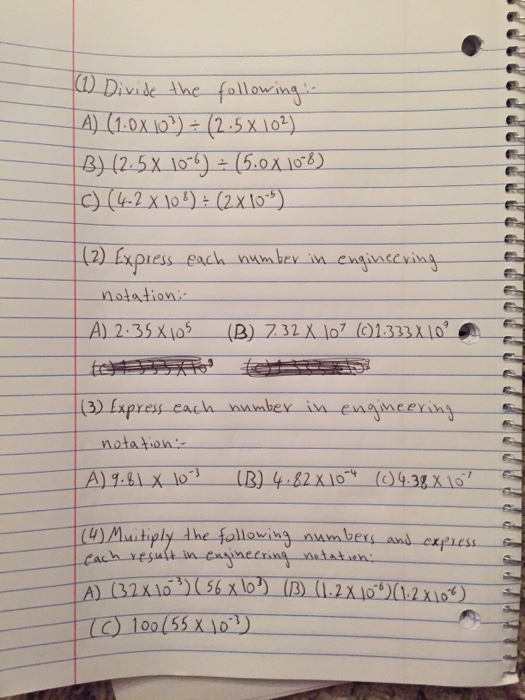 (1) Divide the following:-
A) (1.0 X 10³) ÷ (2.5 X 10²)
B) (2.5 X 10⁻⁶) ÷ (5.0 X 10⁻⁸)
C) (4.2 X 10⁸) ÷ (2 X 10⁻⁵)
(2) Express each number in engineering
notation:-
A) 2.35 X 10⁵ (B) 7.32 X 10⁷ (C) 1.333 X 10⁹
(3) Express each number in engineering
notation:-
A) 9.81 X 10⁻³ (B) 4.82 X 10⁻⁴ (C) 4.38 X 10⁻⁷
(4) Muitiply the following numbers and express
each result in engineering notation:
A) (32 X 10⁻³)(56 X 10³) (B) (1.2 X 10⁻⁶)(1.2 X 10⁻⁶)
(C) 100(55 X 10⁻³)